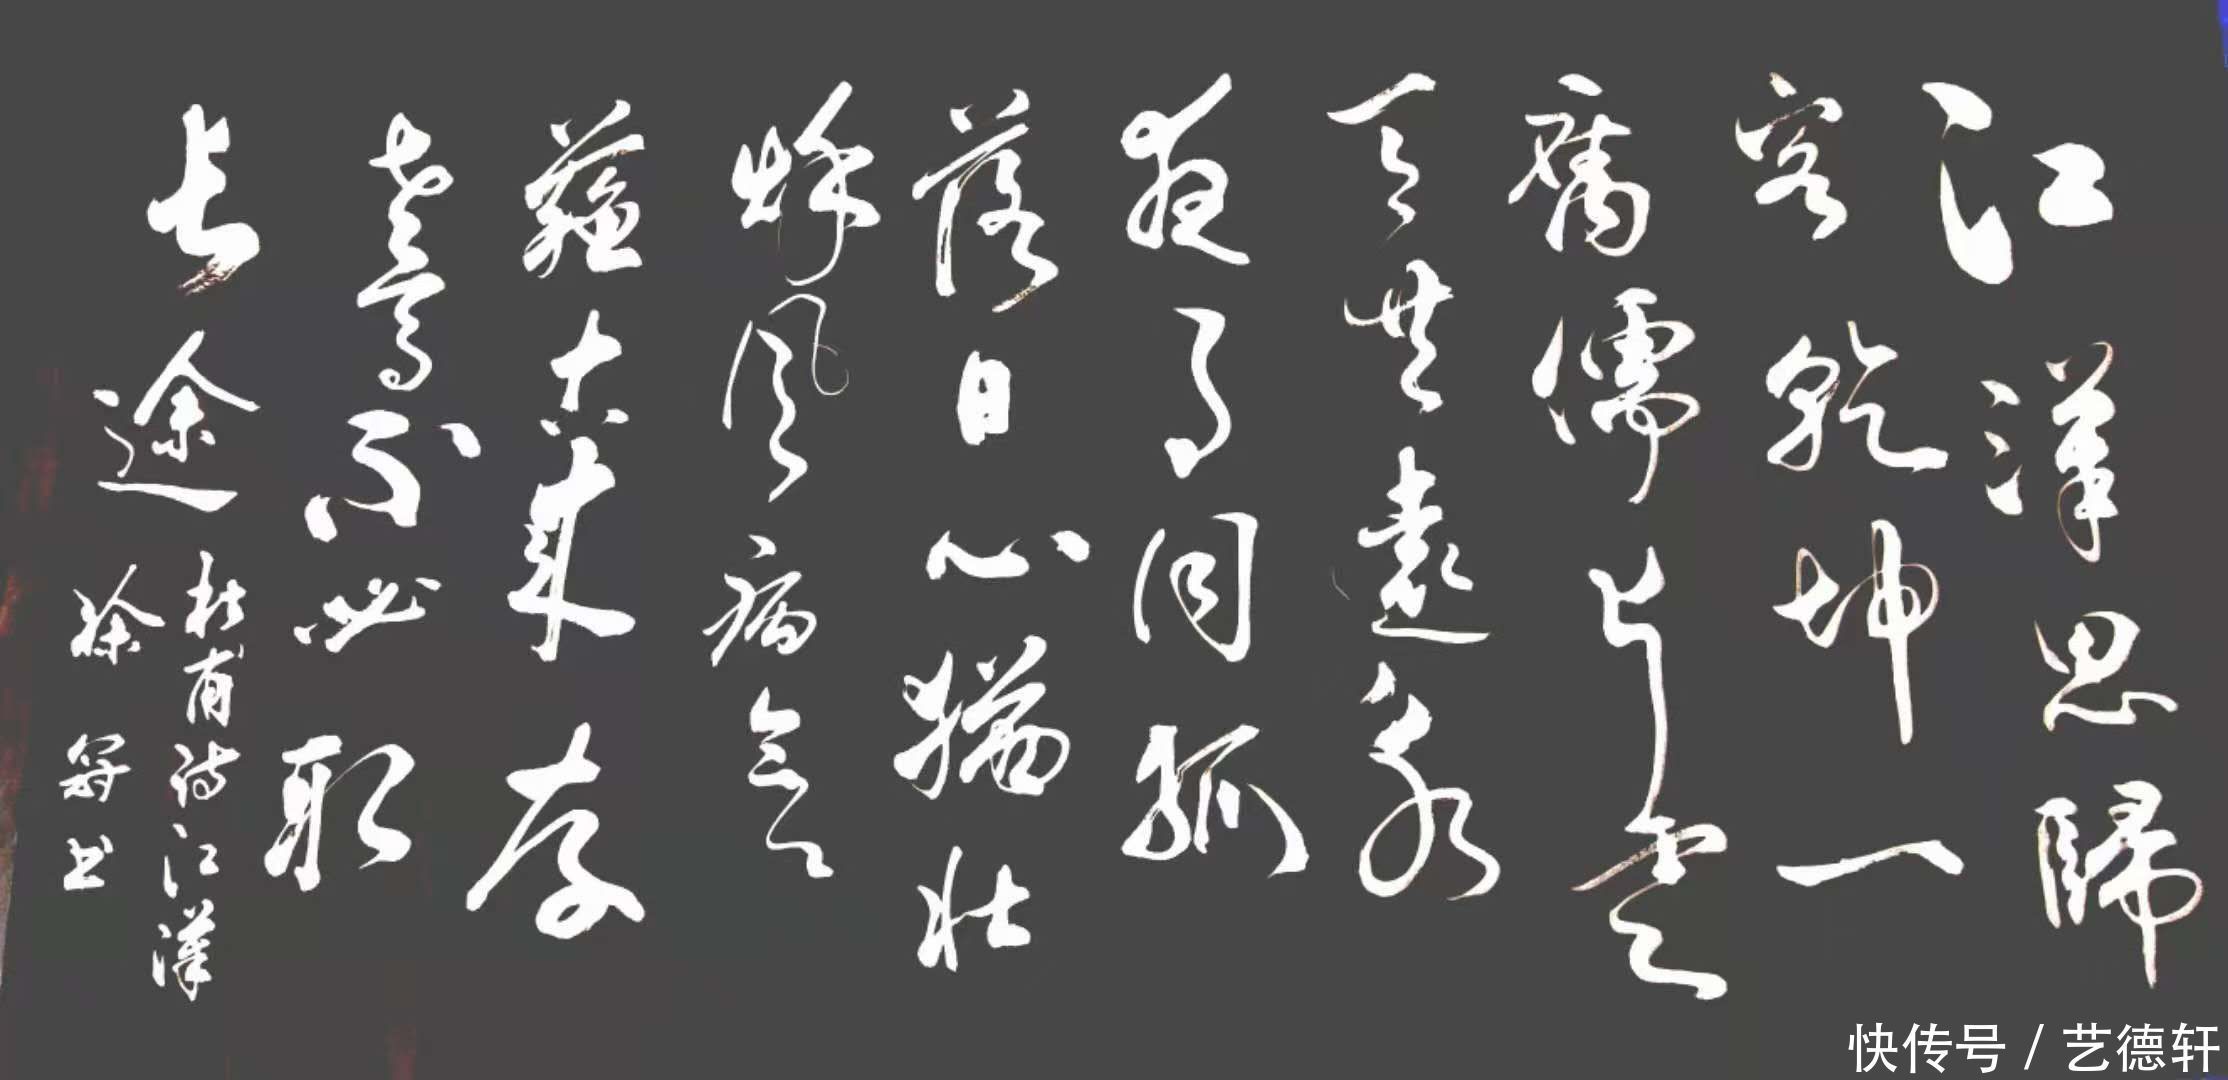 江漢思歸
客乾坤一
腐儒片雲
天共遠永
夜月同孤
落日心猶壯
秋風病欲
蘇古來存
老馬不必取
長途
杜甫詩江漢
徐书
快传号 / 艺德轩